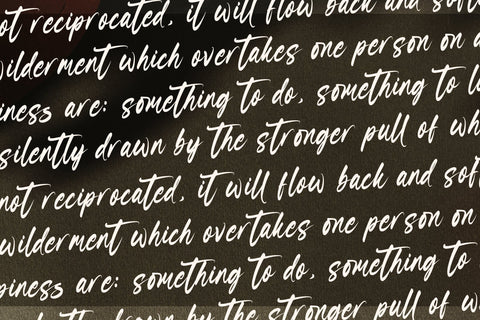 not reciprocated, it will flow back and
wilderment which overtakes one person on
piness are: something to do, something to
silently drawn by the stronger pull of
not reciprocated, it will flow back and
wilderment which overtakes one person on
piness are: something to do, something to
drawn by the stronger pull of